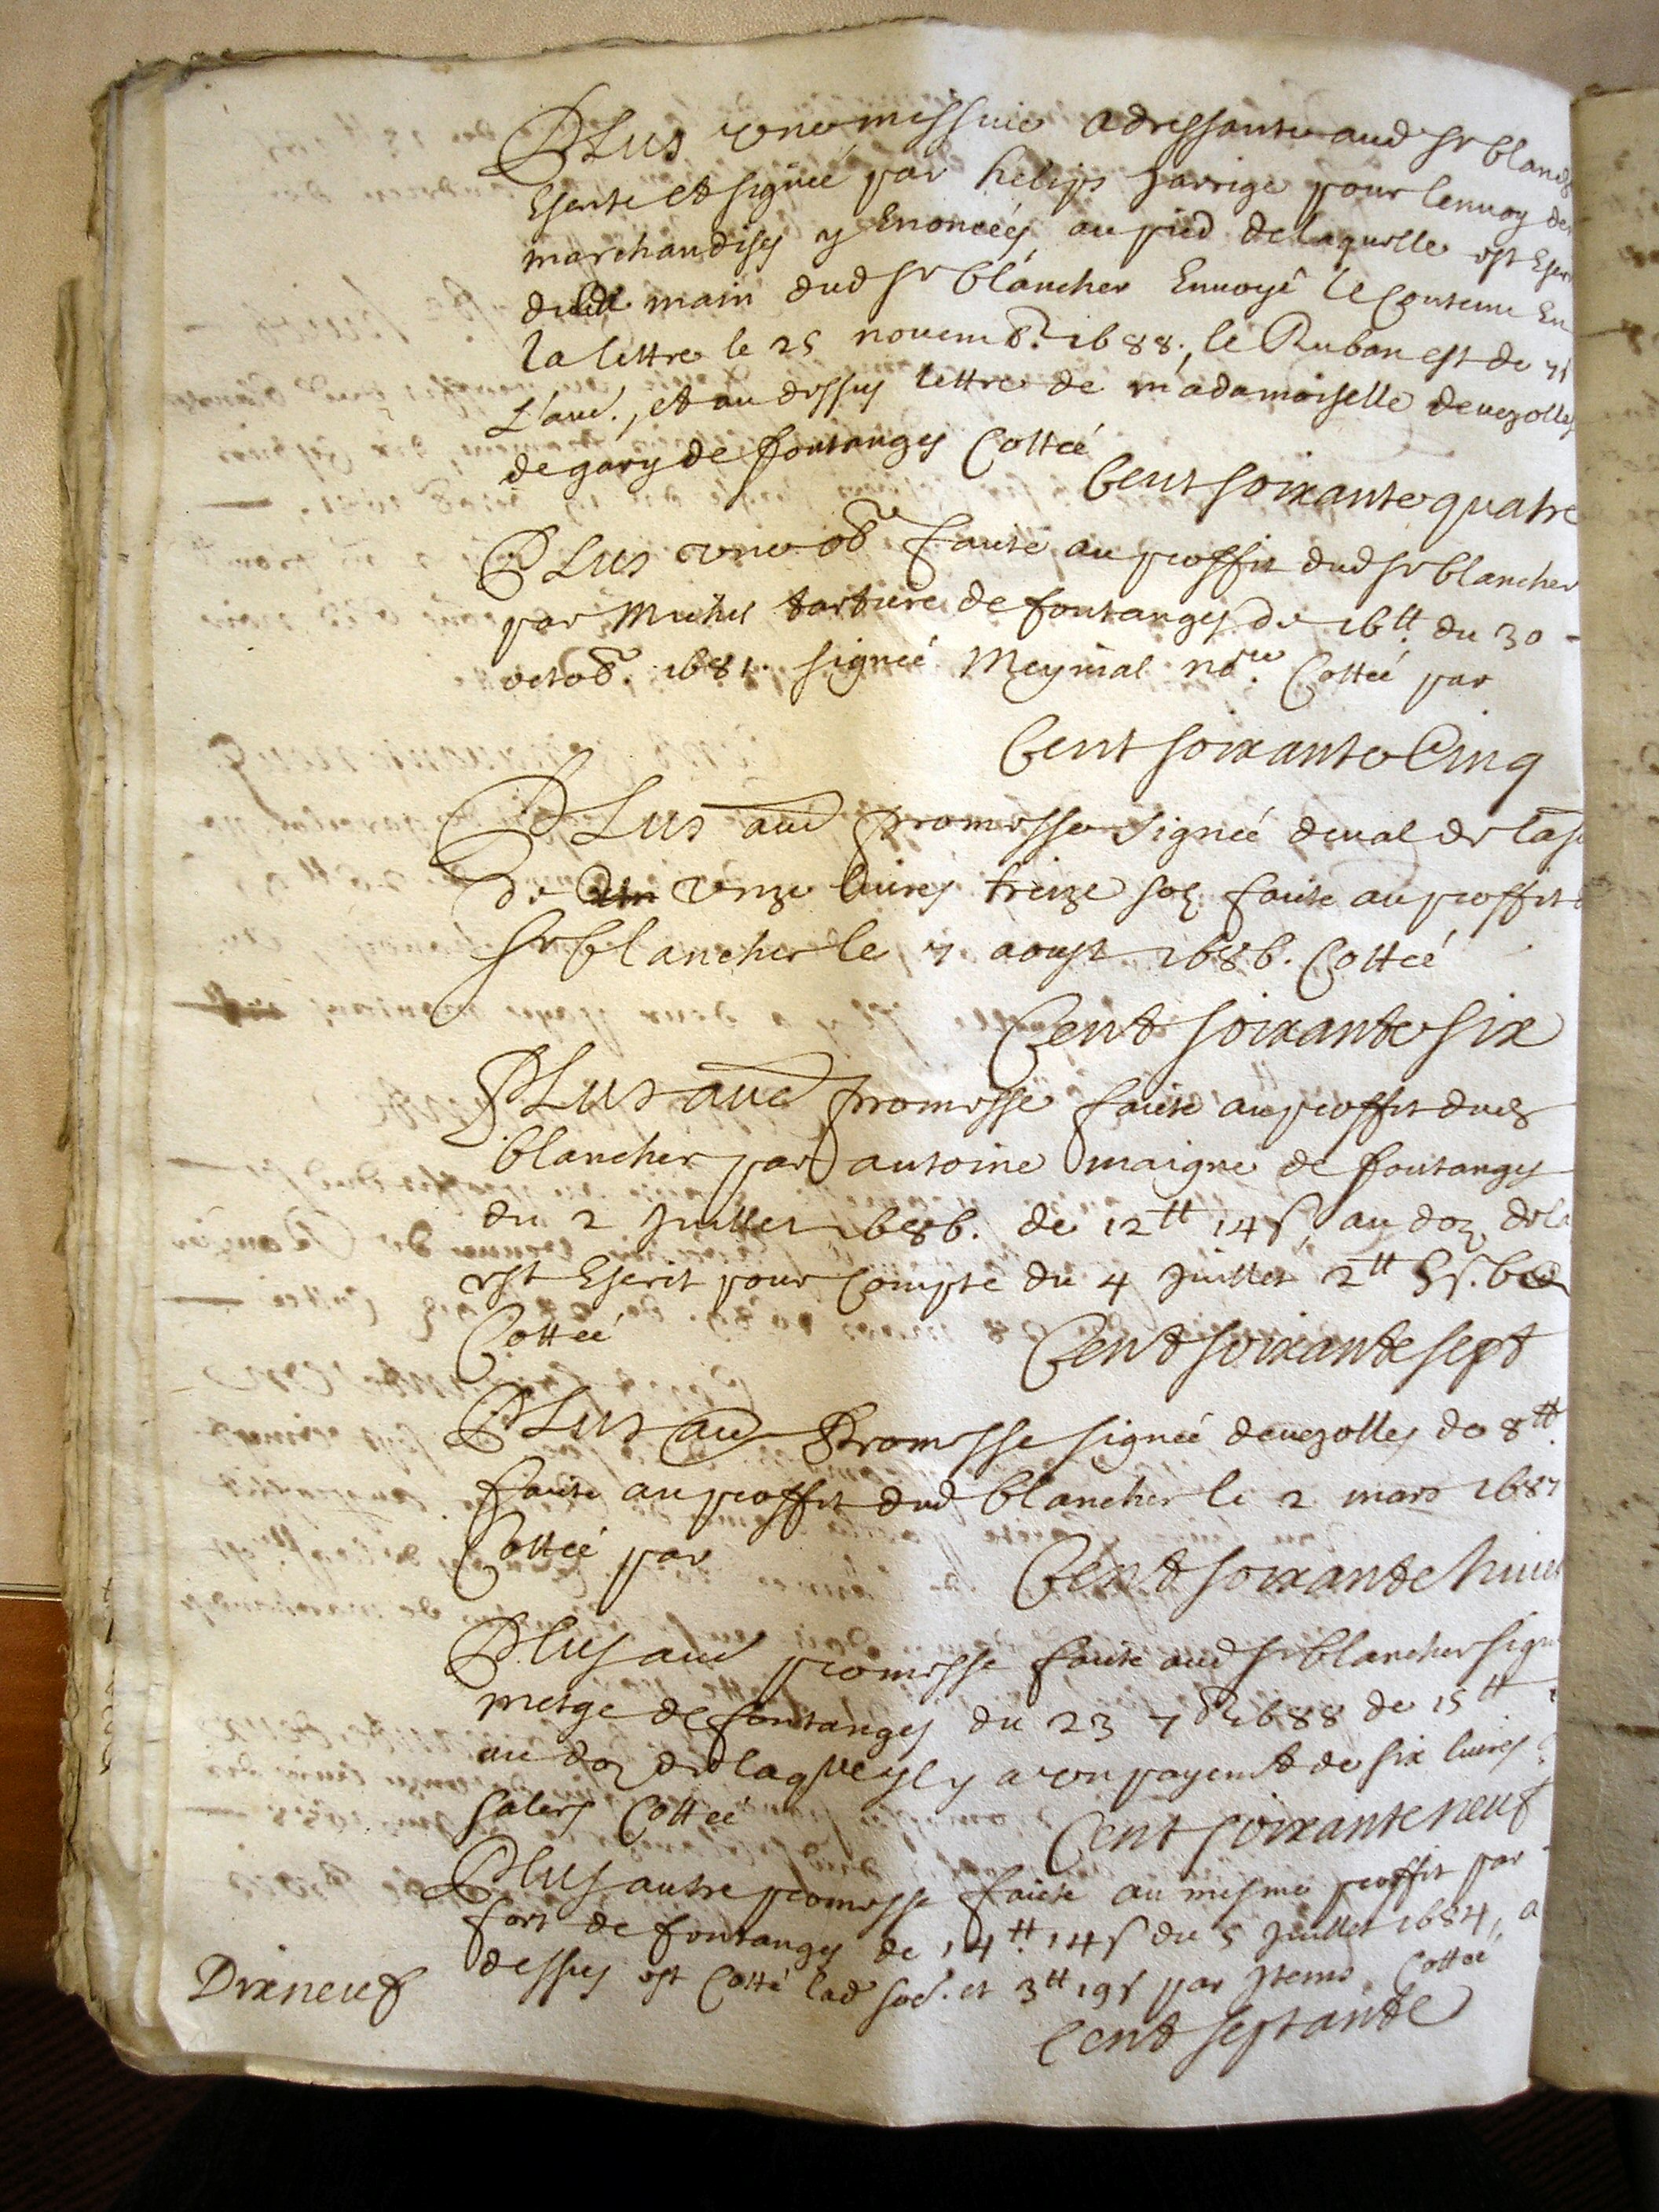 Plus une missive adressante aud Sr blanch
Escrite et signée par helips Jarrige pour lenvoy de
marchandises y Enoncéés, au pied de laquelle est Escr
de la main dud Sr blancher Envoyé le Contenu En
la lettre le 25 novemb. 1688., le Ruban est de 7s
L'aud., et au dessus lettre de madamoiselle devezolles
de gary de fontanges Cottéé
Cent soixante quatre
Plus une ob faite au proffit dud Sr blancher
par Michel tartiere de fontanges de 16tt du 30
octob. 1681. signéé Meynial nore. Cottéé par
Cent soixante Cinq
Plus aud promesse signéé deval de
de unze livres treize solz faite au proffit
Sr blancher le 7 aoust 1686. Cottéé
Cent soixante six
Plus aud promesse faite au proffit dud
blancher par antoine maigne de fontanges
du 2 Juillet 1686. de 12tt 14s, au doz de la
est Escrit pour Compte du 4 Juillet 2tt 5s. 6d
Cottéé
Cent soixante sept
Plus aud Promesse signéé devezolles de 8tt.
faite au proffit dud blancher le 2 mars 1687
Cottéé par
Cent soixante huict
Plus aud promesse faite aud Sr blancher sign
metge de fontanges du 23 7bre 1688 de 15tt
au doz de laqlle yl y a un payemt de six livres
salers Cottéé
Cent soixante neuf
Plus autre promesse faite au mesme proffit par
fort de fontanges de 14tt. 14s du 5 Juillet 1684, a
dessus est Cotté lad sod. et 3tt 19s par Items Cottéé
Cent septante
Dixneuf